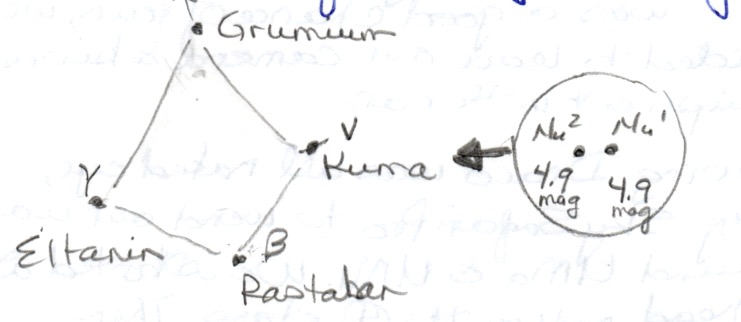 Grumium
ν
Kuma
γ
Eltanin
β
Rastaban
Nu² Nu¹
4.9 4.9
mag mag